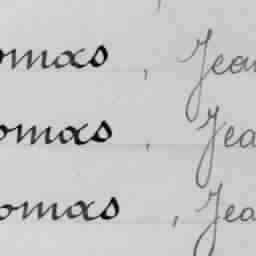 omas, Jean
omas, Jea
omas, Jea